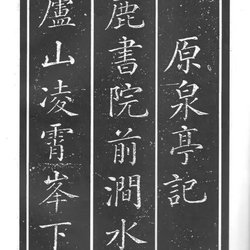 原泉亭記
鹿書院前澗水
廬山凌霄峯下